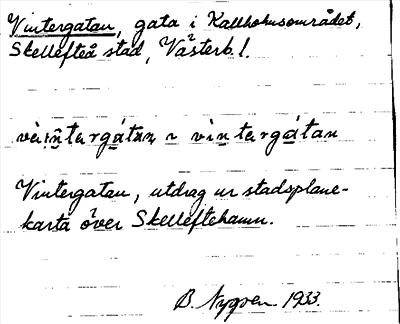 Vintergatan, gata i Kallholmsområdet,
Skellefteå stad, Västerb. l.
vintergátan ~ vintergátan
Vintergatan, utdrag ur stadsplane-
karta över Skelleftehamn.
B. Nygren 1933.